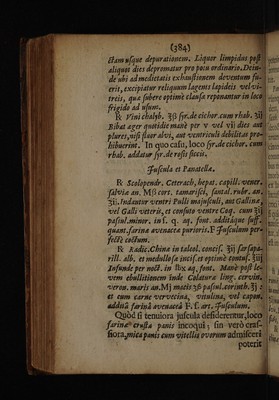 (384)
ctam usque depurationem. Liquor limpidus post
aliquot dies depromatur pro potu ordinario. Dein-
de ubi ad medietatis exhaustionem deventum fu-
erit, excipiatur reliquum lagenis lapideis vel vi-
treis, quæ subere optimè clausæ reponantur in loco
frigido ad usum.
℞ Vini chalyb. ℥ß syr. de cichor. cum rhab. ℥ij
Bibat æger quotidiè manè per v vel vij dies aut
plures, nisi fluor alvi, aut ventriculi debilitas pro-
hibuerint. In quo casu, loco syr. de cichor. cum
rhab. addatur syr. de rosis siccis.
Juscula et Panatella.
℞ Scolopendr. Ceterach, hepat. capill. vener.
salviæ an. Mß cort. tamarisci, santal. rubr. an.
℥ij. Indantur ventri Pulli majusculi, aut Gallinæ,
vel Galli veteris, et consuto ventre Coq. cum ℥ij
passul. minor. in s. q. aq. font. additáque suff.
quant. farina avenacea purioris. F Jusculum per-
fectè coctum.
℞ Radic. China in taleol. concis. ℥ij sarsapa-
rill. alb. et medullosæ incis. et optimè contus. ℥ij
Infunde per noct. in lbx aq. font. Manè post le-
vem ebullitionem inde Colatura ling. cervin.
veron. maris an. Mj motis ℥ß passul. corinth. ℥j :
et cum carne vervecina, vitulina, vel capon.
additâ farinâ avenaceâ F. s. art. Jusculum.
Quòd si tenuiora juscula desiderentur, loco
farinæ crusta panis incoqui, sin verò cras-
siora, mica panis cum vitellis ovorum admisceri
poterit